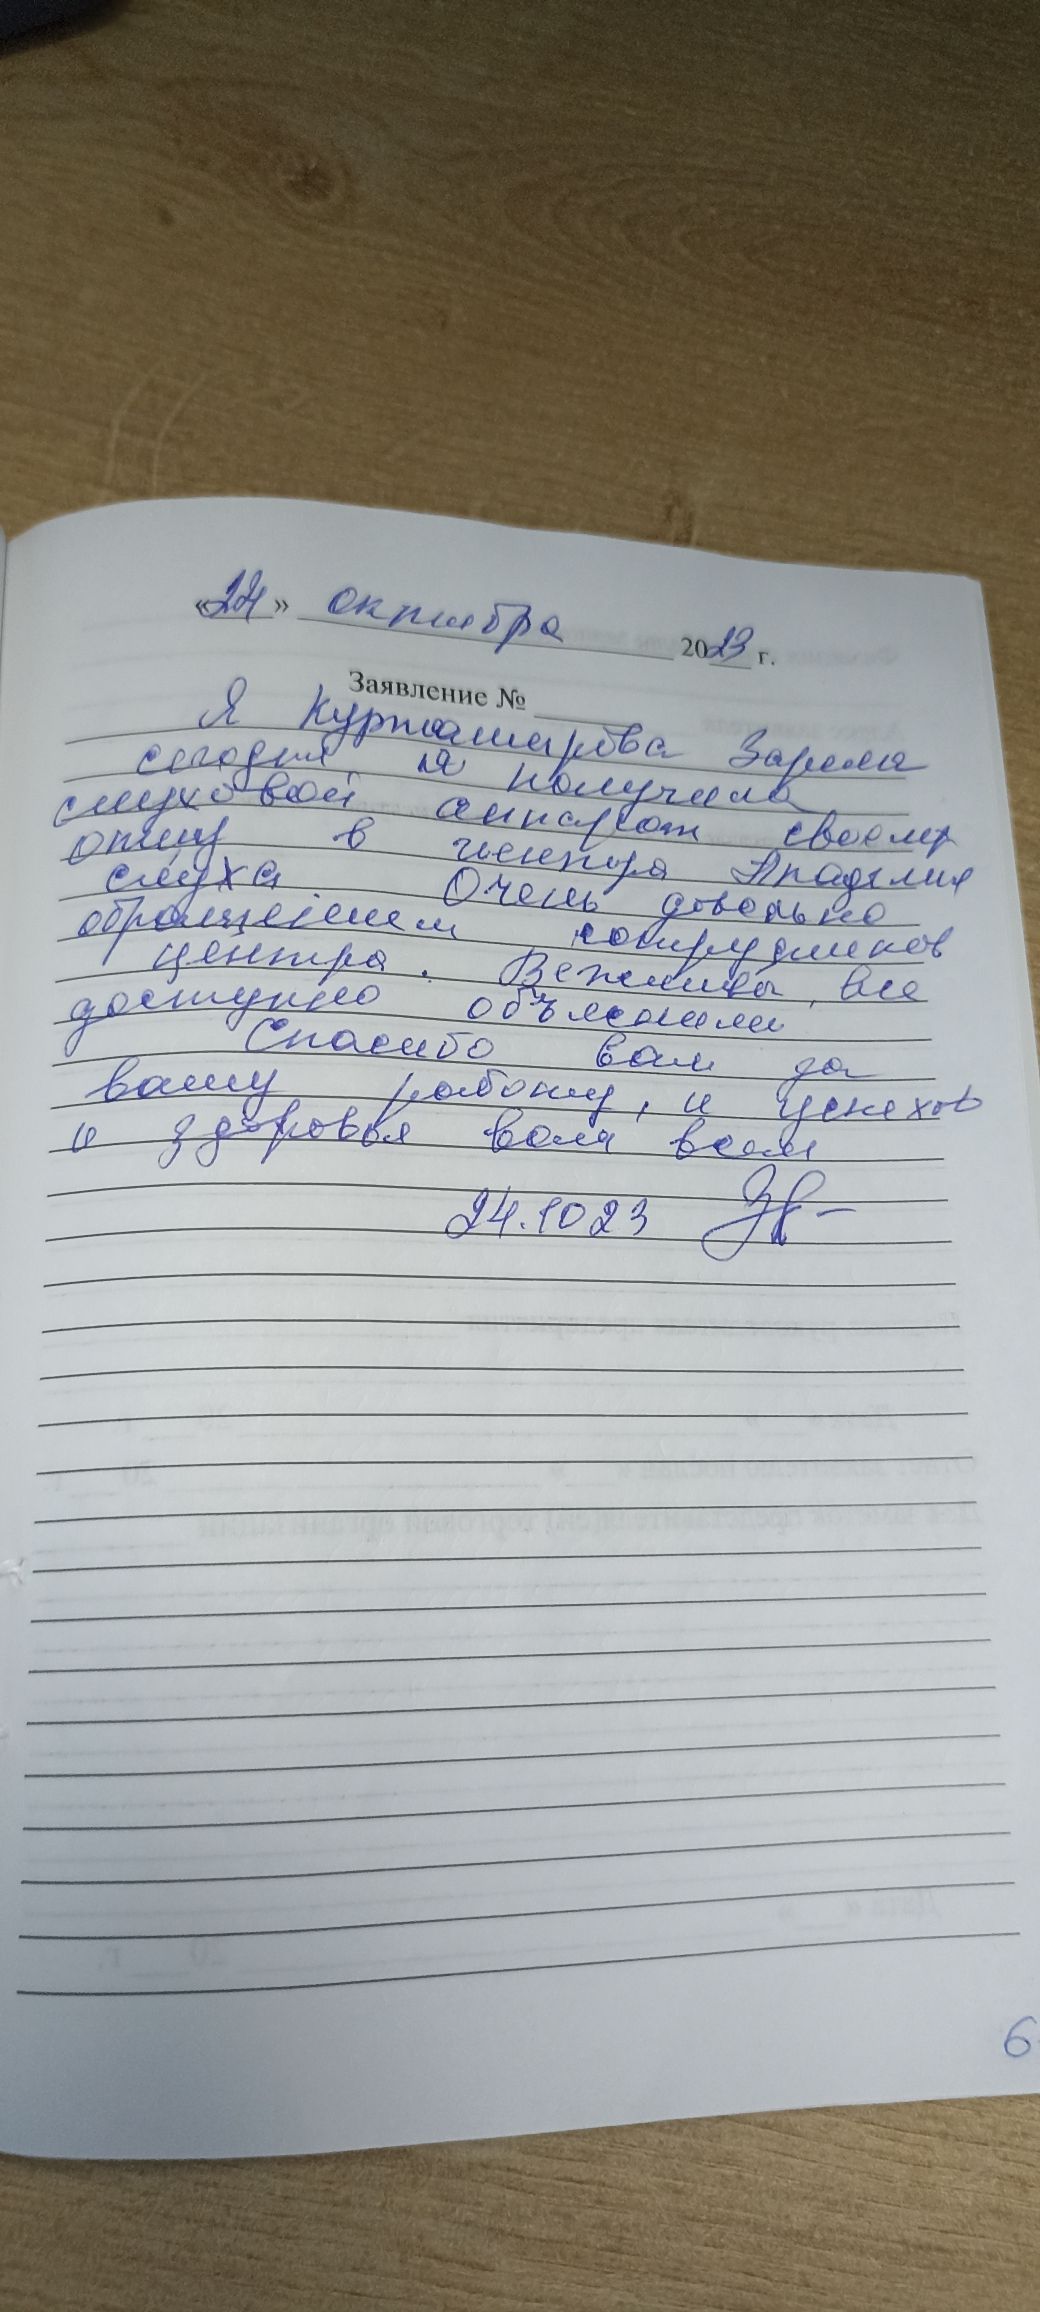 «24» октября 2023 г.
Заявление №
Я Курташирова Зарема
сегодня я получила
слуховой аппарат своему
отцу в центра Академия
слуха. Очень довольна
обращением сотрудников
центра. Вежливы, все
доступно объяснили
Спасибо вам за
вашу работу, и успехов
и здоровья вам всем
24.10 23
6